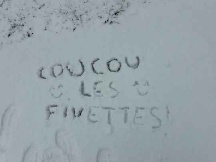 COUCOU
☺ LES ☺
FINETTES!